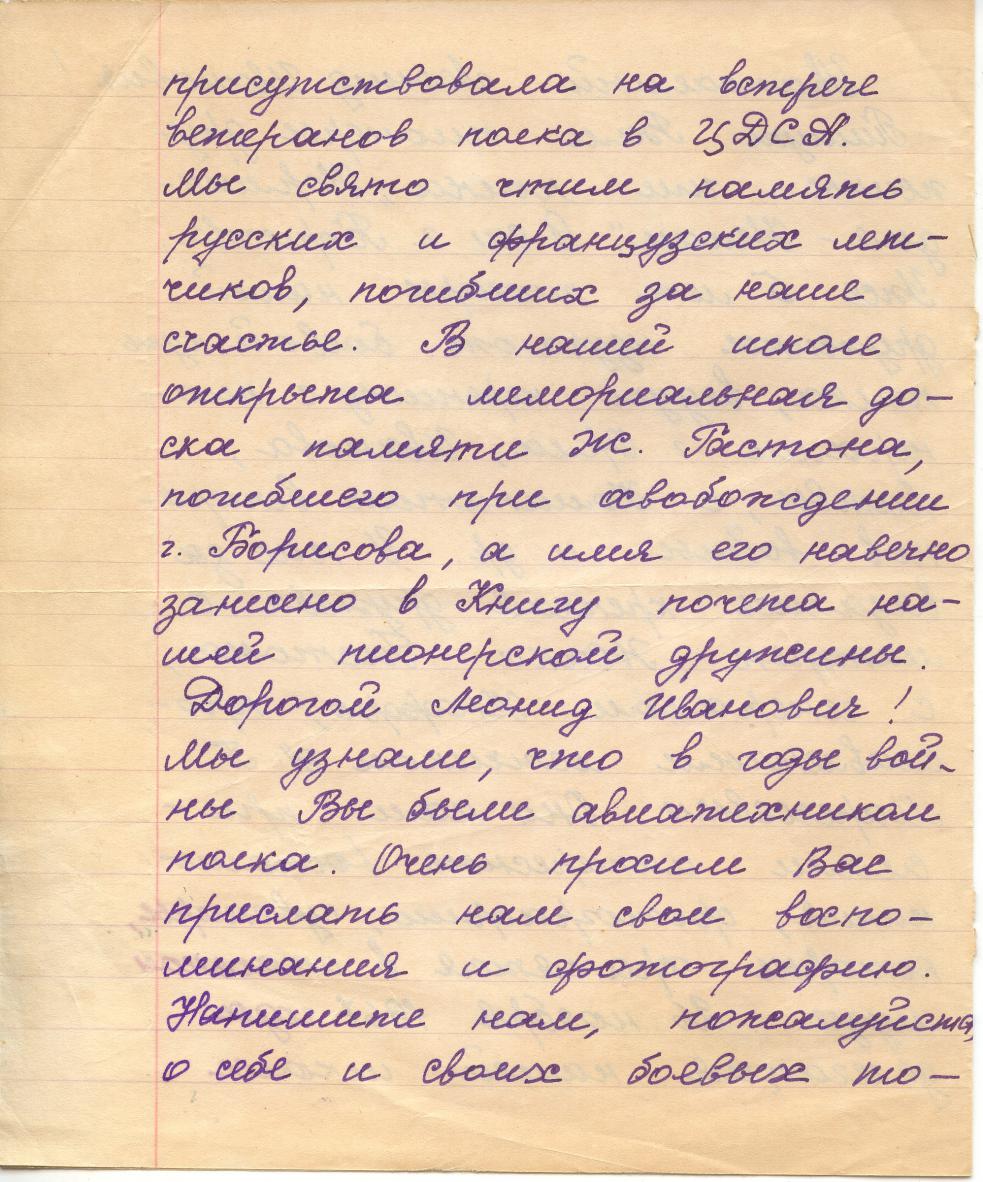 присутствовала на встрече
ветеранов полка в ЦДСА.
Мы свято чтим память
русских и французских лет-
чиков, погибших за наше
счастье. В нашей школе
открыта мемориальная до-
ска памяти Ж. Гастона,
погибшего при освобождении
г. Борисова, а имя его навечно
занесено в Книгу почета на-
шей пионерской дружины.
Дорогой Леонид Иванович!
Мы узнали, что в годы вой-
ны Вы были авиатехником
полка. Очень просим Вас
прислать нам свои воспо-
минания и фотографию.
Напишите нам, пожалуйста,
о себе и своих боевых то-